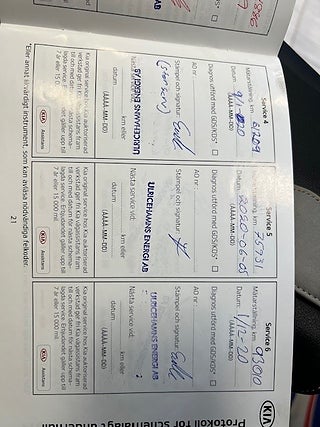 Service 4
Mätarställning, km: 51209
Datum:
(ÅÅÅÅ-MM-DD)
Diagnos utförd med GDS/KDS*
AO nr:
Stämpel och signatur:
ULRICEHAMNS ENERGI AB
Nästa service vid:
km eller
datum
(ÅÅÅÅ-MM-DD)
Kia original service hos Kia auktoriserad
verkstad ger fri Kia Vägassistans fram
till och med datum för nästa schema-
lagda service. Erbjudandet gäller upp till
7 år eller 15 000 mil.
KIA Assistans
Service 5
Mätarställning, km: 75931
Datum: 2020-06-01
(ÅÅÅÅ-MM-DD)
Diagnos utförd med GDS/KDS*
AO nr:
Stämpel och signatur:
ULRICEHAMNS ENERGI AB
Nästa service vid:
km eller
datum
(ÅÅÅÅ-MM-DD)
Kia original service hos Kia auktoriserad
verkstad ger fri Kia Vägassistans fram
till och med datum för nästa schema-
lagda service. Erbjudandet gäller upp till
7 år eller 15 000 mil.
KIA Assistans
Service 6
Mätarställning, km: 91010
Datum: 1/12-20
(ÅÅÅÅ-MM-DD)
Diagnos utförd med GDS/KDS*
AO nr:
Stämpel och signatur:
ULRICEHAMNS ENERGI AB
Nästa service vid:
km eller
datum
(ÅÅÅÅ-MM-DD)
Kia original service hos Kia auktoriserad
verkstad ger fri Kia Vägassistans fram
till och med datum för nästa schema-
lagda service. Erbjudandet gäller upp till
7 år eller 15 000 mil.
KIA Assistans
*Eller annat likvärdigt instrument, som kan avläsa nödvändiga felkoder.
21
KIA
Protokoll för schemalagt underhåll